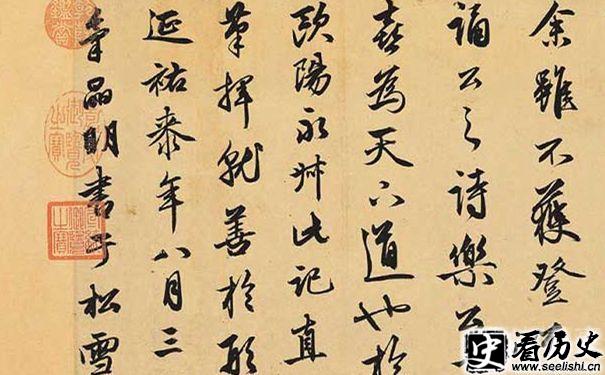 余雖不獲登
誦公之詩樂公
喜為天下道也於
歐陽永叔此記直
筆揮就善於形
延祐桼年八月三
晶明書于松雪
史看历史
www.seelishi.cn